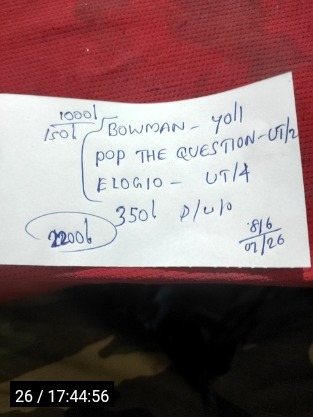 1000l
150l
BOWMAN - YO11
POP THE QUESTION - UT/2
ELOGIO - UT/4
350l P/U/O
2200l
8/6
01/26
26 / 17:44:56